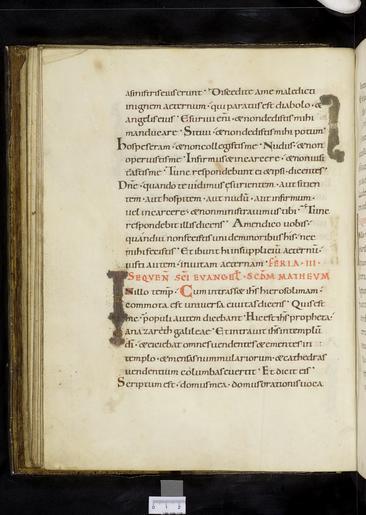 asinistris eius erunt · Discedite ame maledicti
in ignem aeternum · qui paratus est diabolo · &
angelis eius · Esuriui eni · & non dedistis mihi
manducare · Sitiui · & non dedistis mihi potum ·
hospes eram · & non collegistis me · Nudus · & non
operuistis me · Infirmus & in carcere · & non uisi
tastis me · Tunc respondebunt ei & ipsi · dicentes ·
Dne · quando te uidimus esurientem · aut sitien
tem · aut hospitem · aut nudu · aut infirmum ·
uel in carcere · & non ministrauimus tibi · Tunc
respondebit illis dicens · Amen dico uobis ·
quandiu non fecistis uni de minoribus his · nec
mihi fecistis · Et ibunt hi in suppliciu aeternu ·
iusti autem · in uitam aeternam · FERIA · III ·
SEQUEN SCI EVANGEL · SCDM MATHEUM
In illo temp · Cum intrass& ihs hierosolimam ·
commota est uniuersa ciuitas dicens · Quis est
hic · populi autem dicebant · Hic est ihs propheta ·
a nazareth galileae · Et intrauit ihs in templu
di · & eiciebat omnes uendentes & ementes in
templo · & mensas nummulariorum · & cathedras
uendentium columbas euertit · Et dicit eis ·
Scriptum est · domus mea · domus orationis uoca